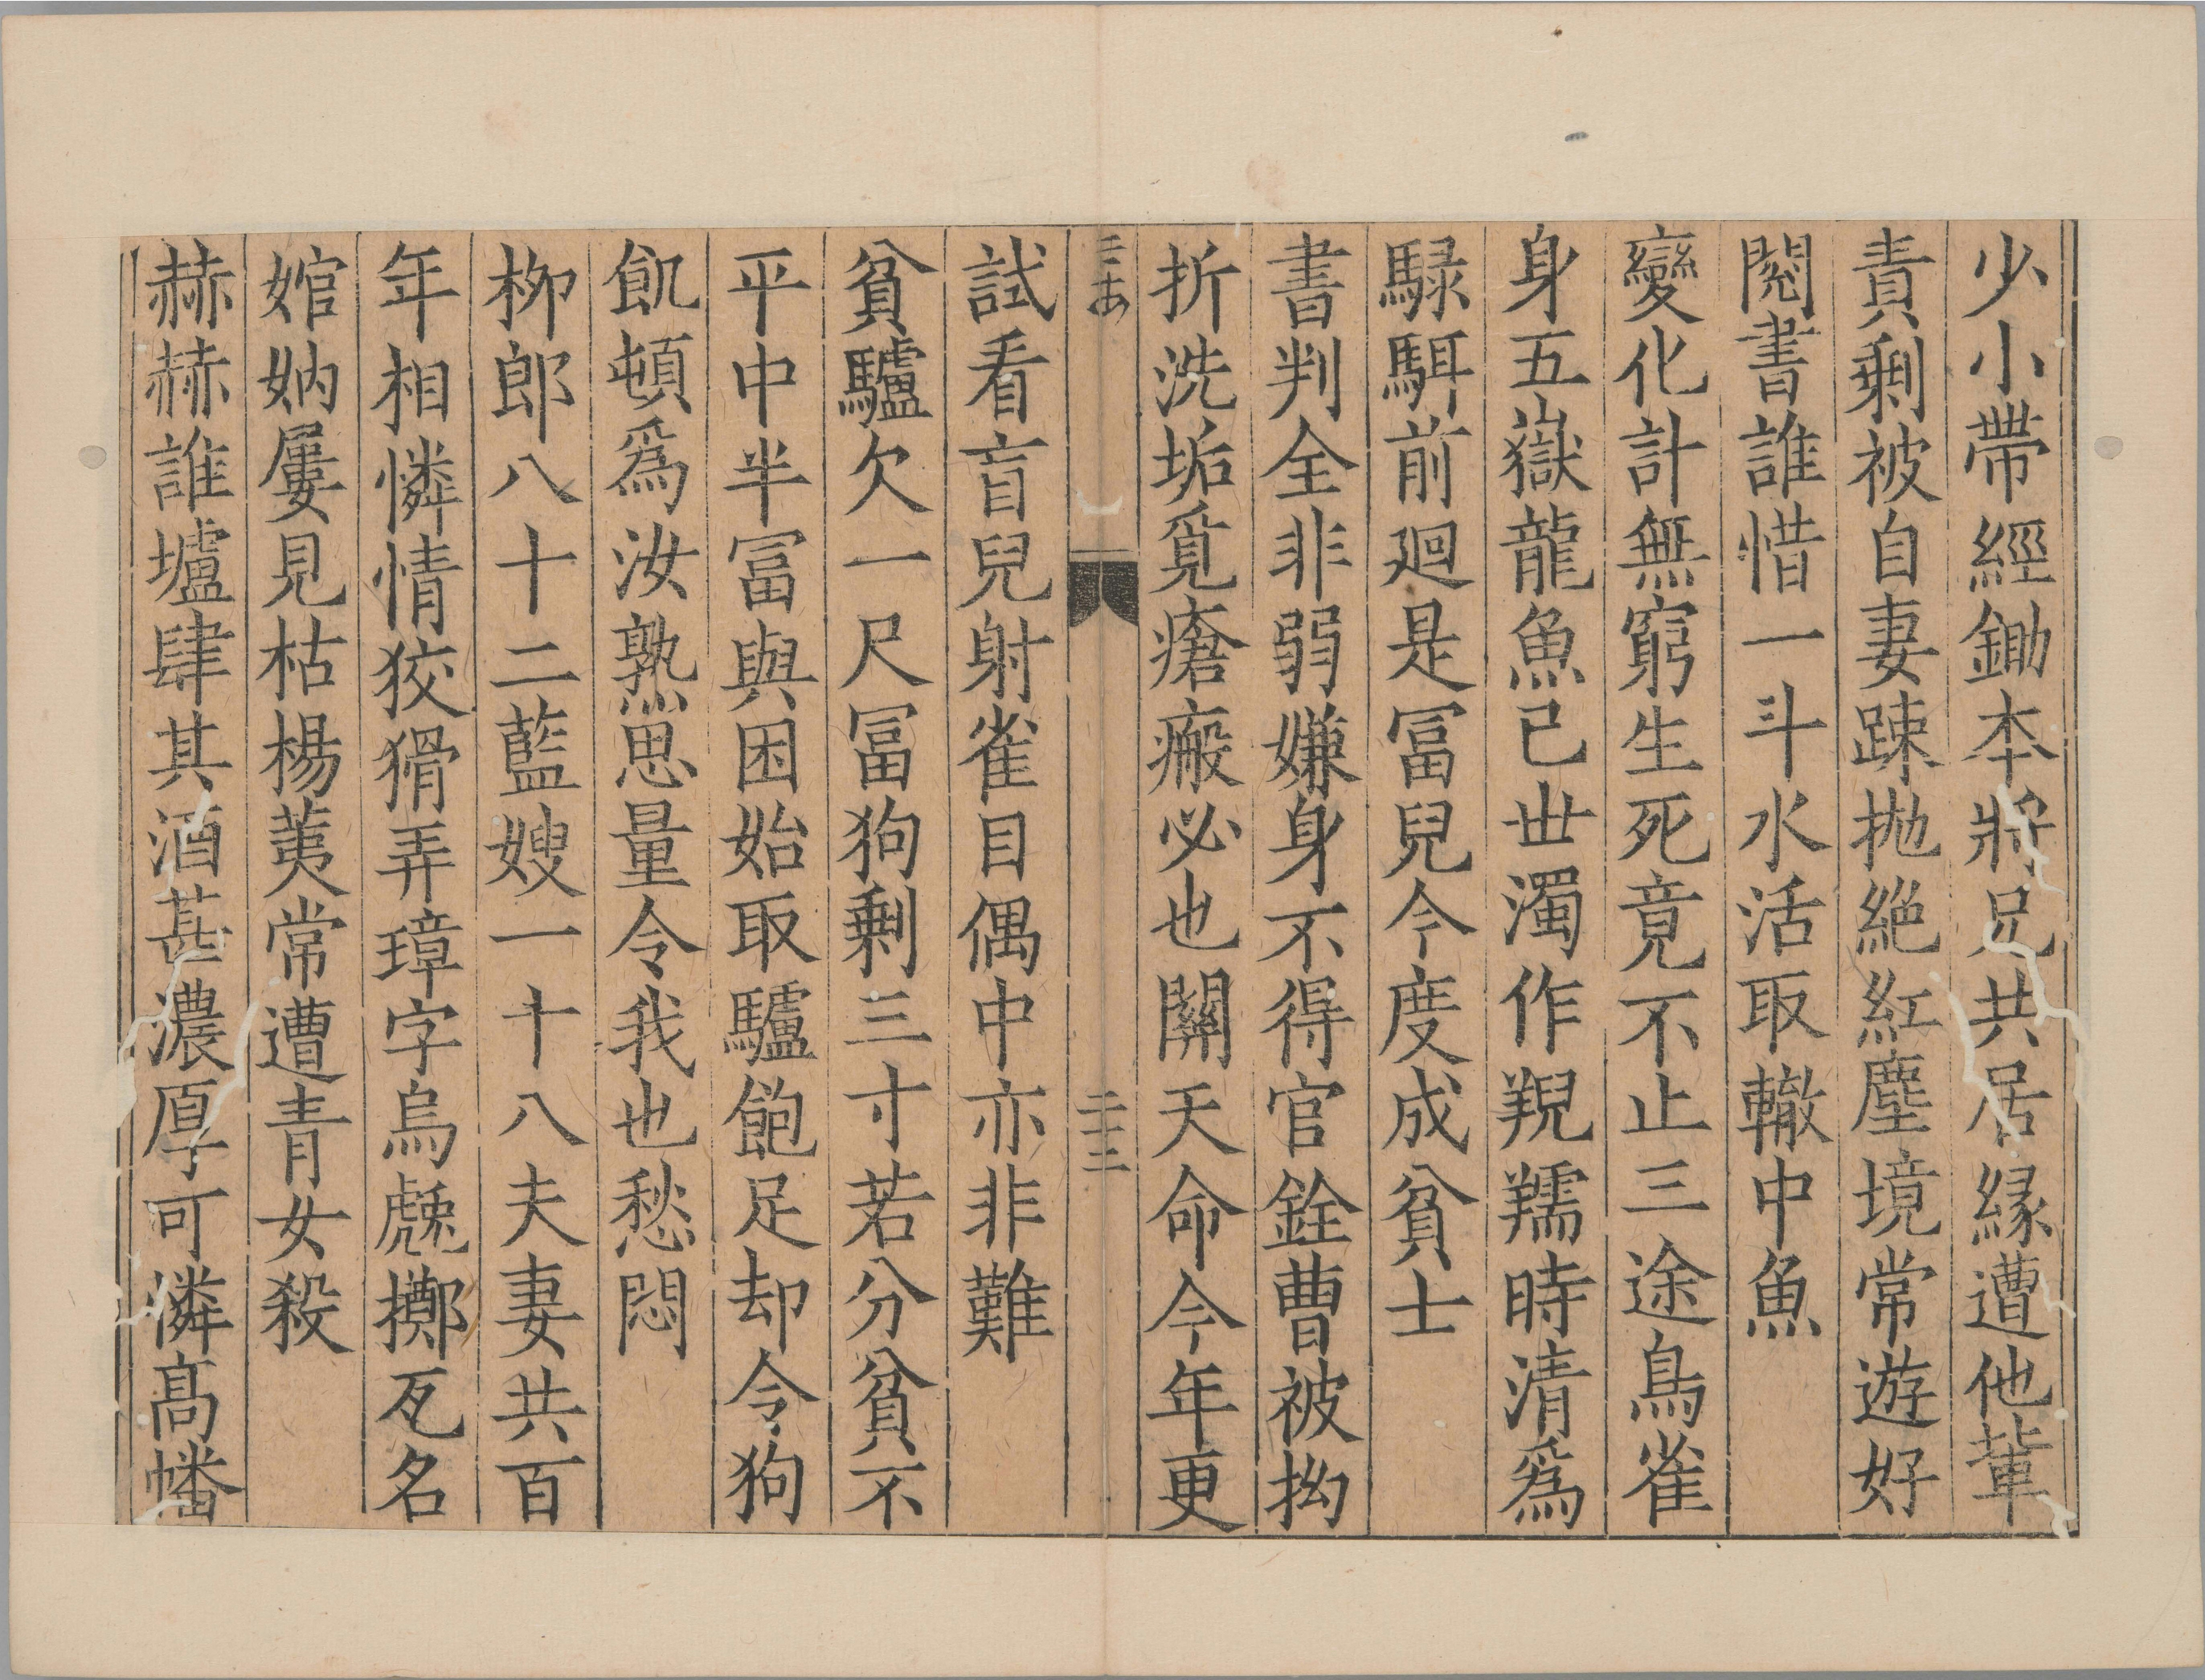 少小帶經鋤本將兄共居緣遭他軰
責剩被自妻踈抛絕紅塵境常遊好
閱書誰惜一斗水活取轍中魚
變化計無窮生死竟不止三途鳥雀
身五嶽龍魚已世濁作羺羺時清爲
騄駬前廻是冨兒今度成貧士
書判全非弱嫌身不得官銓曹被拗
折洗垢覓瘡瘢必也關天命今年更
三
二十三
試看盲兒射雀目偶中亦非難
貧驢欠一尺冨狗剩三寸若分貧不
平中半冨與困始取驢飽足却令狗
飢頓爲汝熟思量令我也愁悶
柳郎八十二藍嫂一十八夫妻共百
年相憐情狡猾弄璋字烏䖘擲瓦名
婠妠屢見枯楊荑常遭青女殺
赫赫誰壚肆其酒甚濃厚可憐高幡